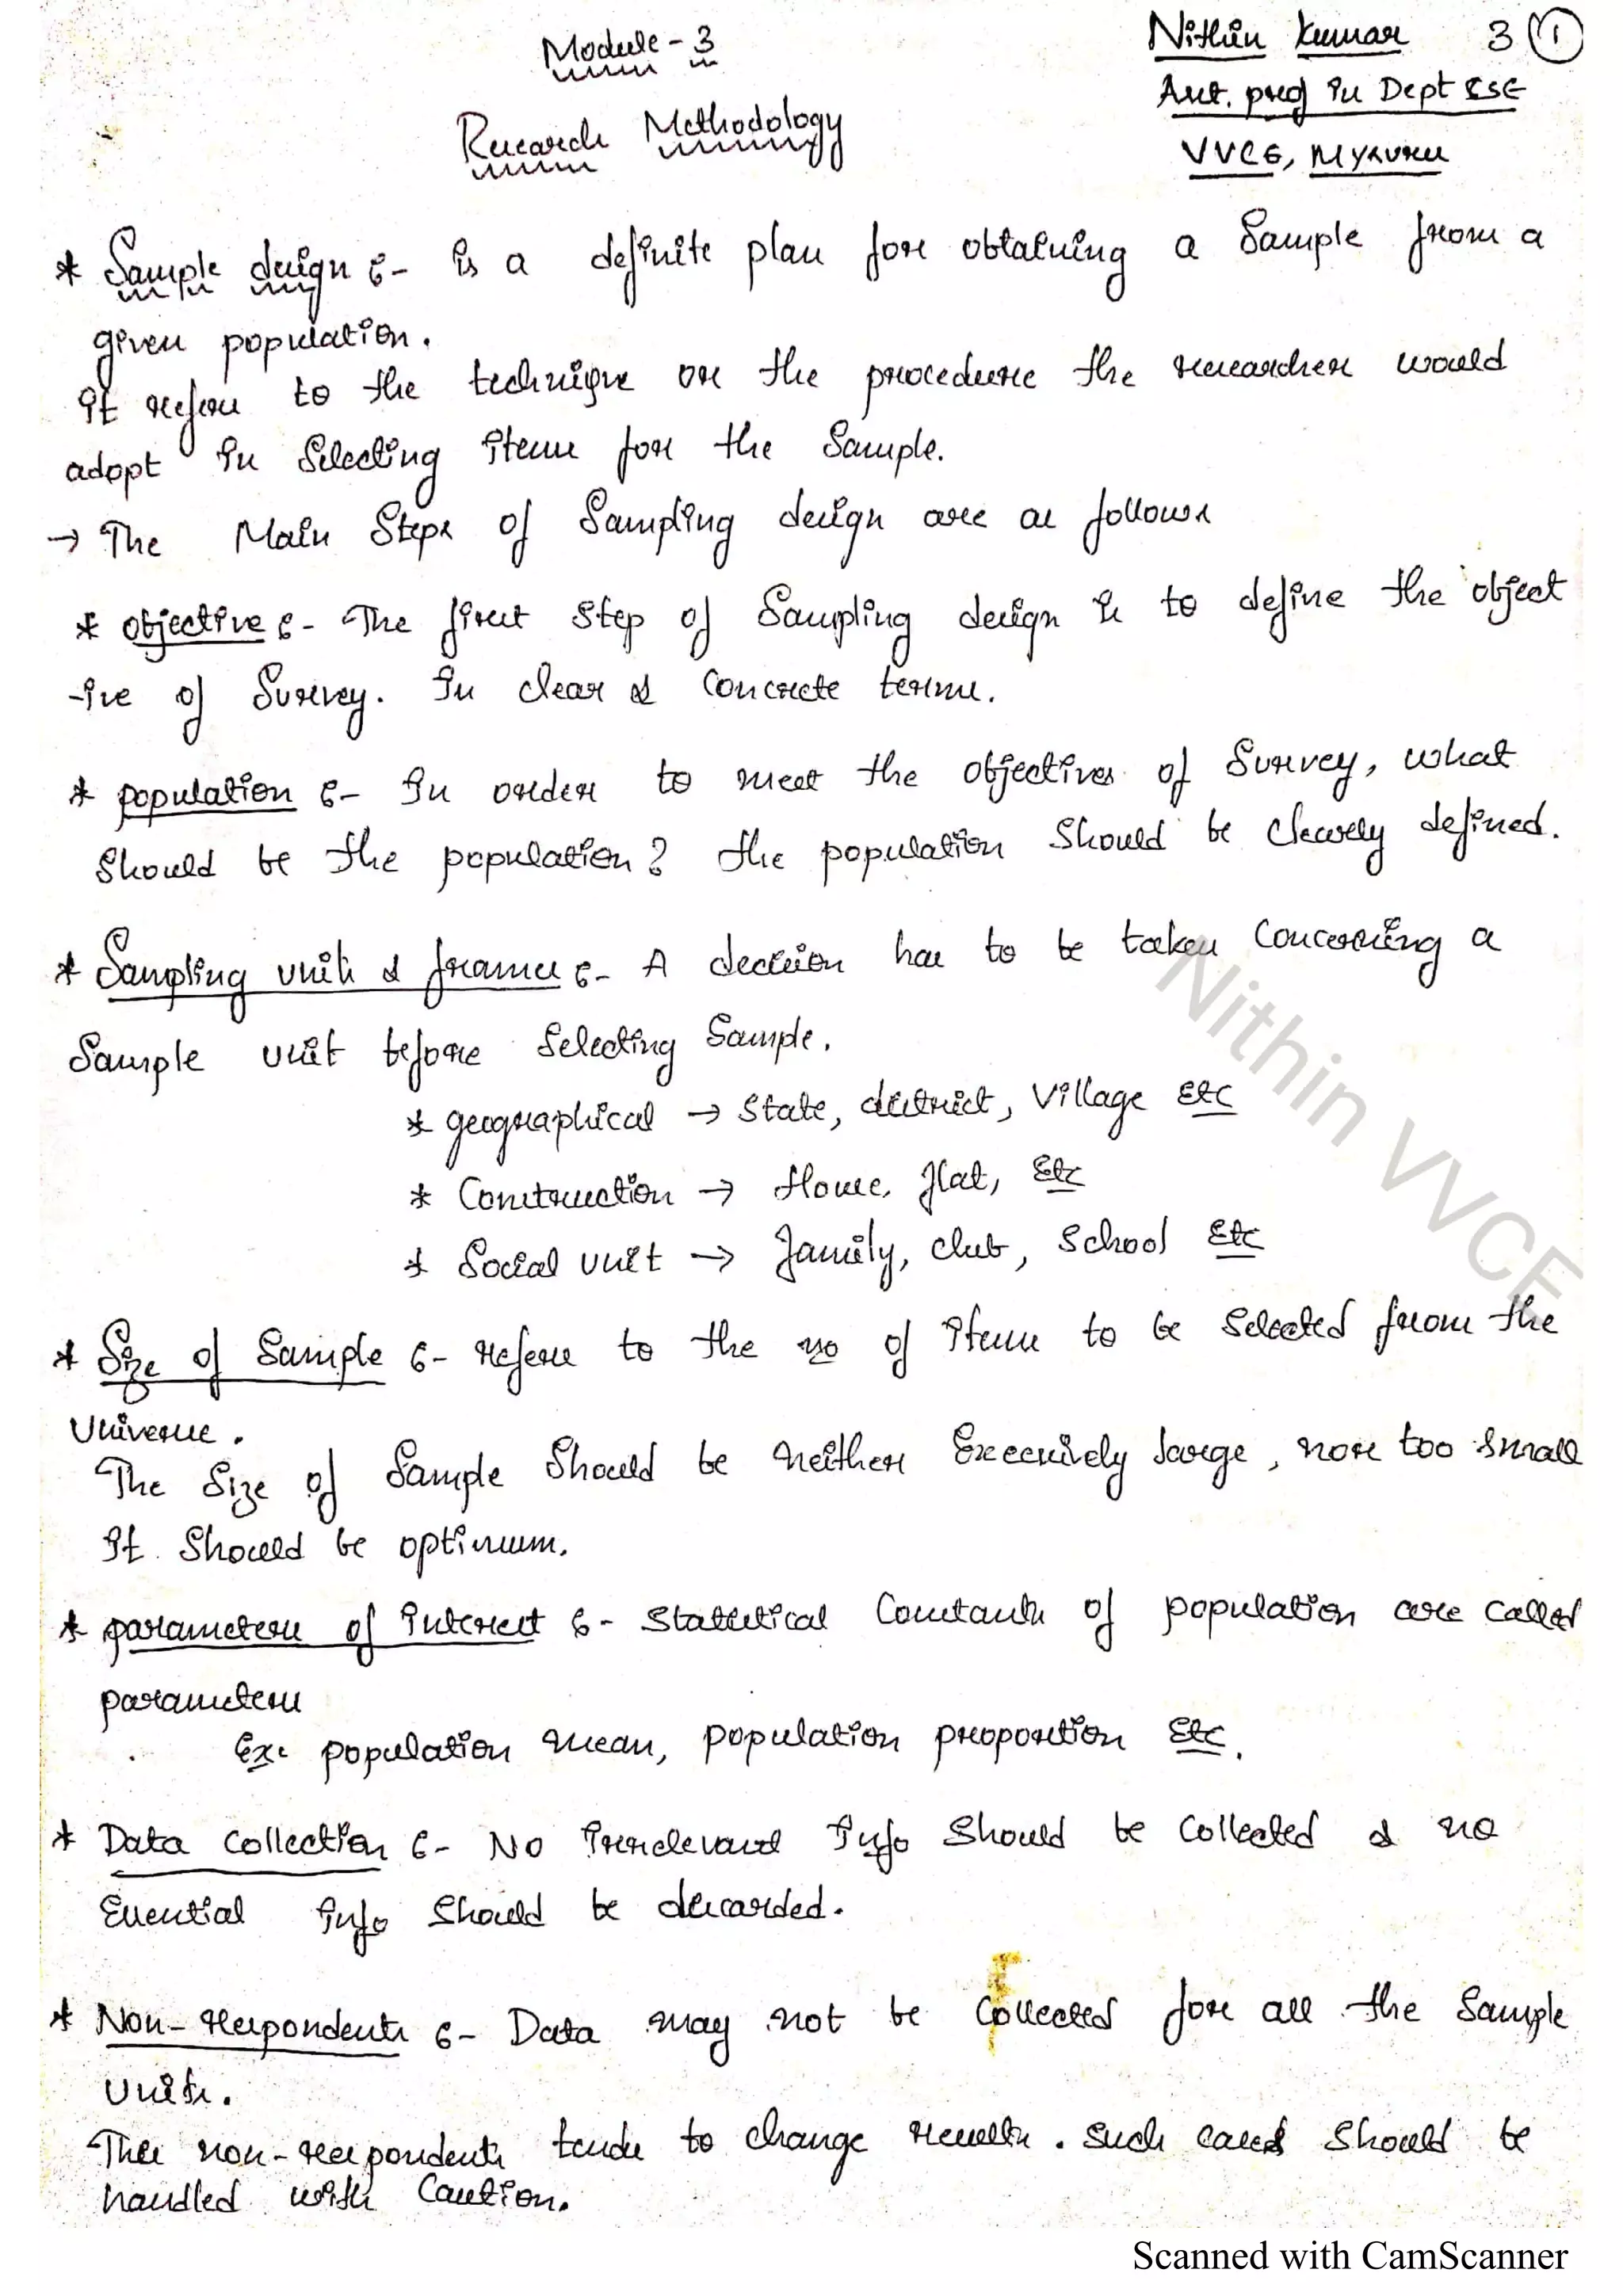 Module - 3
Nithin Kumar 3 1
Asst. prof in Dept ISE
Research Methodology
VVCE, Mysuru
* Sample design :- is a definite plan for obtaining a Sample from a
given population.
it refers to the technique or the procedure the researcher would
adopt in Selecting items for the Sample.
→ The Main Steps of Sampling design are as follows
* objective :- The first Step of Sampling design is to define the object
-ive of Survey. In clear & Concrete terms.
* population :- In order to meet the objectives of Survey, what
Should be the population? the population Should be Clearly defined.
* Sampling units & frames :- A decision has to be taken Concerning a
Sample unit before Selecting Sample.
* geographical → State, district, Village Etc
* Construction → House, flat, Etc
* Social unit → family, club, School Etc
* Size of Sample :- refers to the no of items to be Selected from the
Universe.
The Size of Sample Should be neither Excessively large, nor too Small
It Should be optimum.
* parameters of interest :- Statistical Constants of population are called
parameters
Ex: population mean, population proportion Etc.
* Data collection :- No irrelevant info Should be Collected & no
Essential info Should be discarded.
* Non-respondents :- Data may not be Collected for all the Sample
Units.
This non-respondents tends to change results. Such cases Should be
handled with Caution.
Nithin VVCE
Scanned with CamScanner